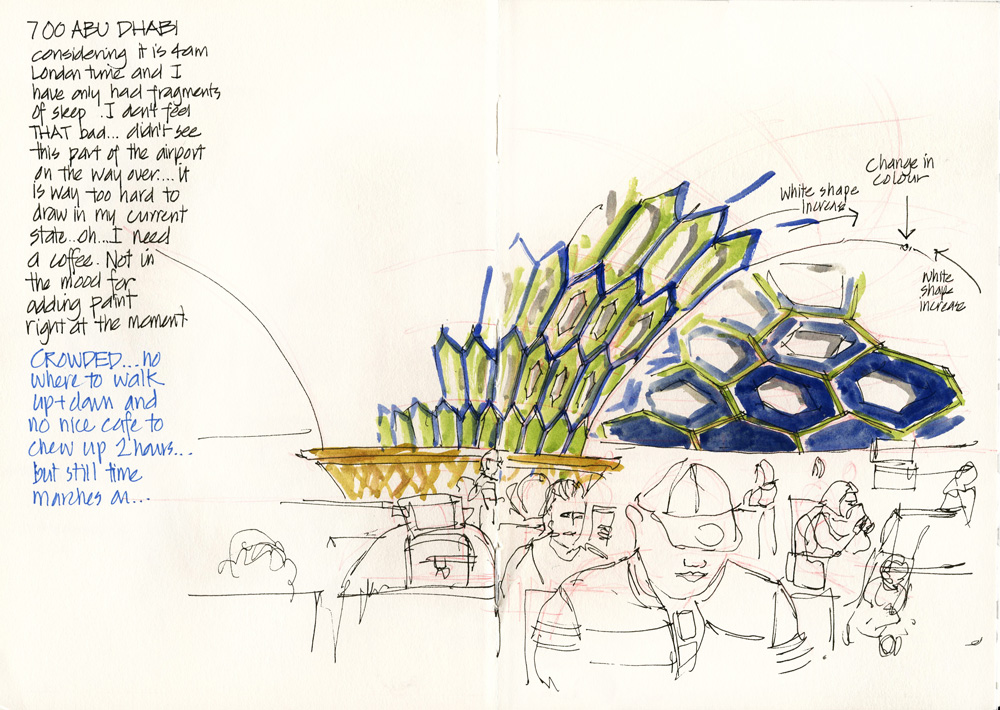 700 ABU DHABI
considering it is 4am
London time and I
have only had fragments
of sleep . I don't feel
THAT bad... didn't see
this part of the airport
on the way over.... it
is way too hard to
draw in my current
state...oh...I need
a coffee. Not in
the mood for
adding paint
right at the moment
CROWDED...no
where to walk
up+down and
no nice cafe to
chew up 2 hours...
but still time
marches on...
White shape
increase
Change in
colour
white
shape
increase